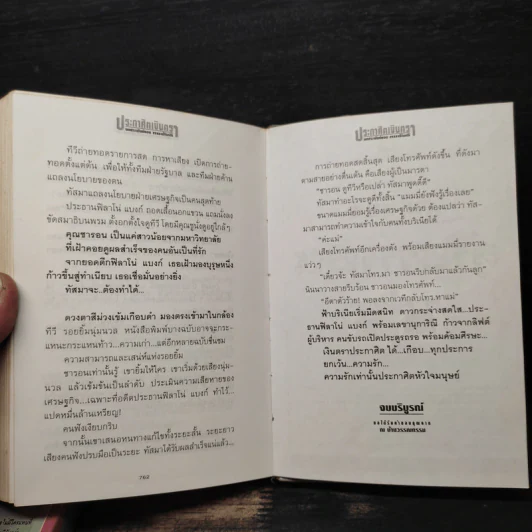 ประกาศิตเงินตรา
ทีวีถ่ายทอดรายการสด การหาเสียง เปิดการถ่าย-
ทอดตั้งแต่ต้น เพื่อให้ทั้งทีมฝ่ายรัฐบาล และทีมฝ่ายค้าน
แถลงนโยบายของตน
ทัสมาแถลงนโยบายฝ่ายเศรษฐกิจเป็นคนสุดท้าย
ประธานฟิลาโน่ แบงก์ ถอดเสื้อนอกแขวน แถมนั่งลง
ขัดสมาธิบนพรม ตั้งอกตั้งใจดูทีวี โดยมีคุณชูนั่งดูอยู่ใกล้ๆ
คุณชารอน เป็นแค่สาวน้อยจากมหาวิทยาลัย
ที่เฝ้าคอยดูผลสำเร็จของคนอันเป็นที่รัก
จากยอดตึกฟิลาโน่ แบงก์ เธอเฝ้ามองบุรุษหนึ่ง
ก้าวขึ้นสู่ทำเนียบ เธอเชื่อมั่นอย่างยิ่ง
ทัสมาจะ..ต้องทำได้...
ดวงตาสีม่วงเข้มเกือบดำ มองตรงเข้ามาในกล้อง
ทีวี รอยยิ้มนุ่มนวล หนังสือพิมพ์บางฉบับอาจจะกระ-
แนะกระแหนทำว้า...ความเก่า...แต่อีกหลายฉบับชื่นชม
ความสามารถและเสน่ห์แห่งรอยยิ้ม
ชารอนเท่านั้นรู้ เขายิ้มให้ใคร เขาเริ่มด้วยเสียงนุ่ม-
นวล แล้วเข้มข้นเป็นลำดับ ประเมินความเสียหายของ
เศรษฐกิจ...เฉพาะที่อดีตประธานฟิลาโน่ แบงก์ ทำไว้...
แปดหมื่นล้านเหรียญ!
คนฟังเงียบกริบ
จากนั้นเขาเสนอหนทางแก้ไขทั้งระยะสั้น ระยะยาว
เสียงคนฟังปรบมือเป็นระยะ ทัสมาได้รับผลสำเร็จแน่แล้ว...
762
ประกาศิตเงินตรา
การถ่ายทอดสดสิ้นสุด เสียงโทรศัพท์ดังขึ้น ที่ดังมา
ตามสายอย่างตื่นเต้น คือเสียงผู้เป็นมารดา
“ชารอน ดูทีวีหรือเปล่า ทัสมาพูดดี๊ดี”
“ทัสมาทำอะไรจะดูดีทั้งสิ้น” “แมมมี่ยังฟังรู้เรื่องเลย”
ขนาดแมมมี่ยอมรู้เรื่องเศรษฐกิจด้วย ต้องแปลว่า ทัส-
มาสามารถทำความเข้าใจกับคนทั้งบริเนียได้
“ค่ะแม่”
เสียงโทรศัพท์อีกเครื่องดัง พร้อมเสียงแมมมี่รายงาน
แว่วๆ
“เดี๋ยวจ้ะ ทัสมาโทร.มา ชารอนรีบกลับมาแล้วกันลูก”
นันนาวางสายรีบร้อน ชารอนมองโทรศัพท์...
“อีตาตัวร้าย! พอลงจากเวทีกลับโทร.หาแม่”
ฟ้าบริเนียเริ่มมืดสนิท ดาวกระจ่างสดใส...ประ-
ธานฟิลาโน่ แบงก์ พร้อมเลขานุการิณี ก้าวจากลิฟต์
ผู้บริหาร คนขับรถเปิดประตูรถรอ พร้อมค้อมศีรษะ...
เงินตราประกาศิต ได้...เกือบ...ทุกประการ
ยกเว้น...ความรัก...
ความรักเท่านั้นประกาศิตหัวใจมนุษย์
จบบริบูรณ์
ณ บ้านวรรณกรรม